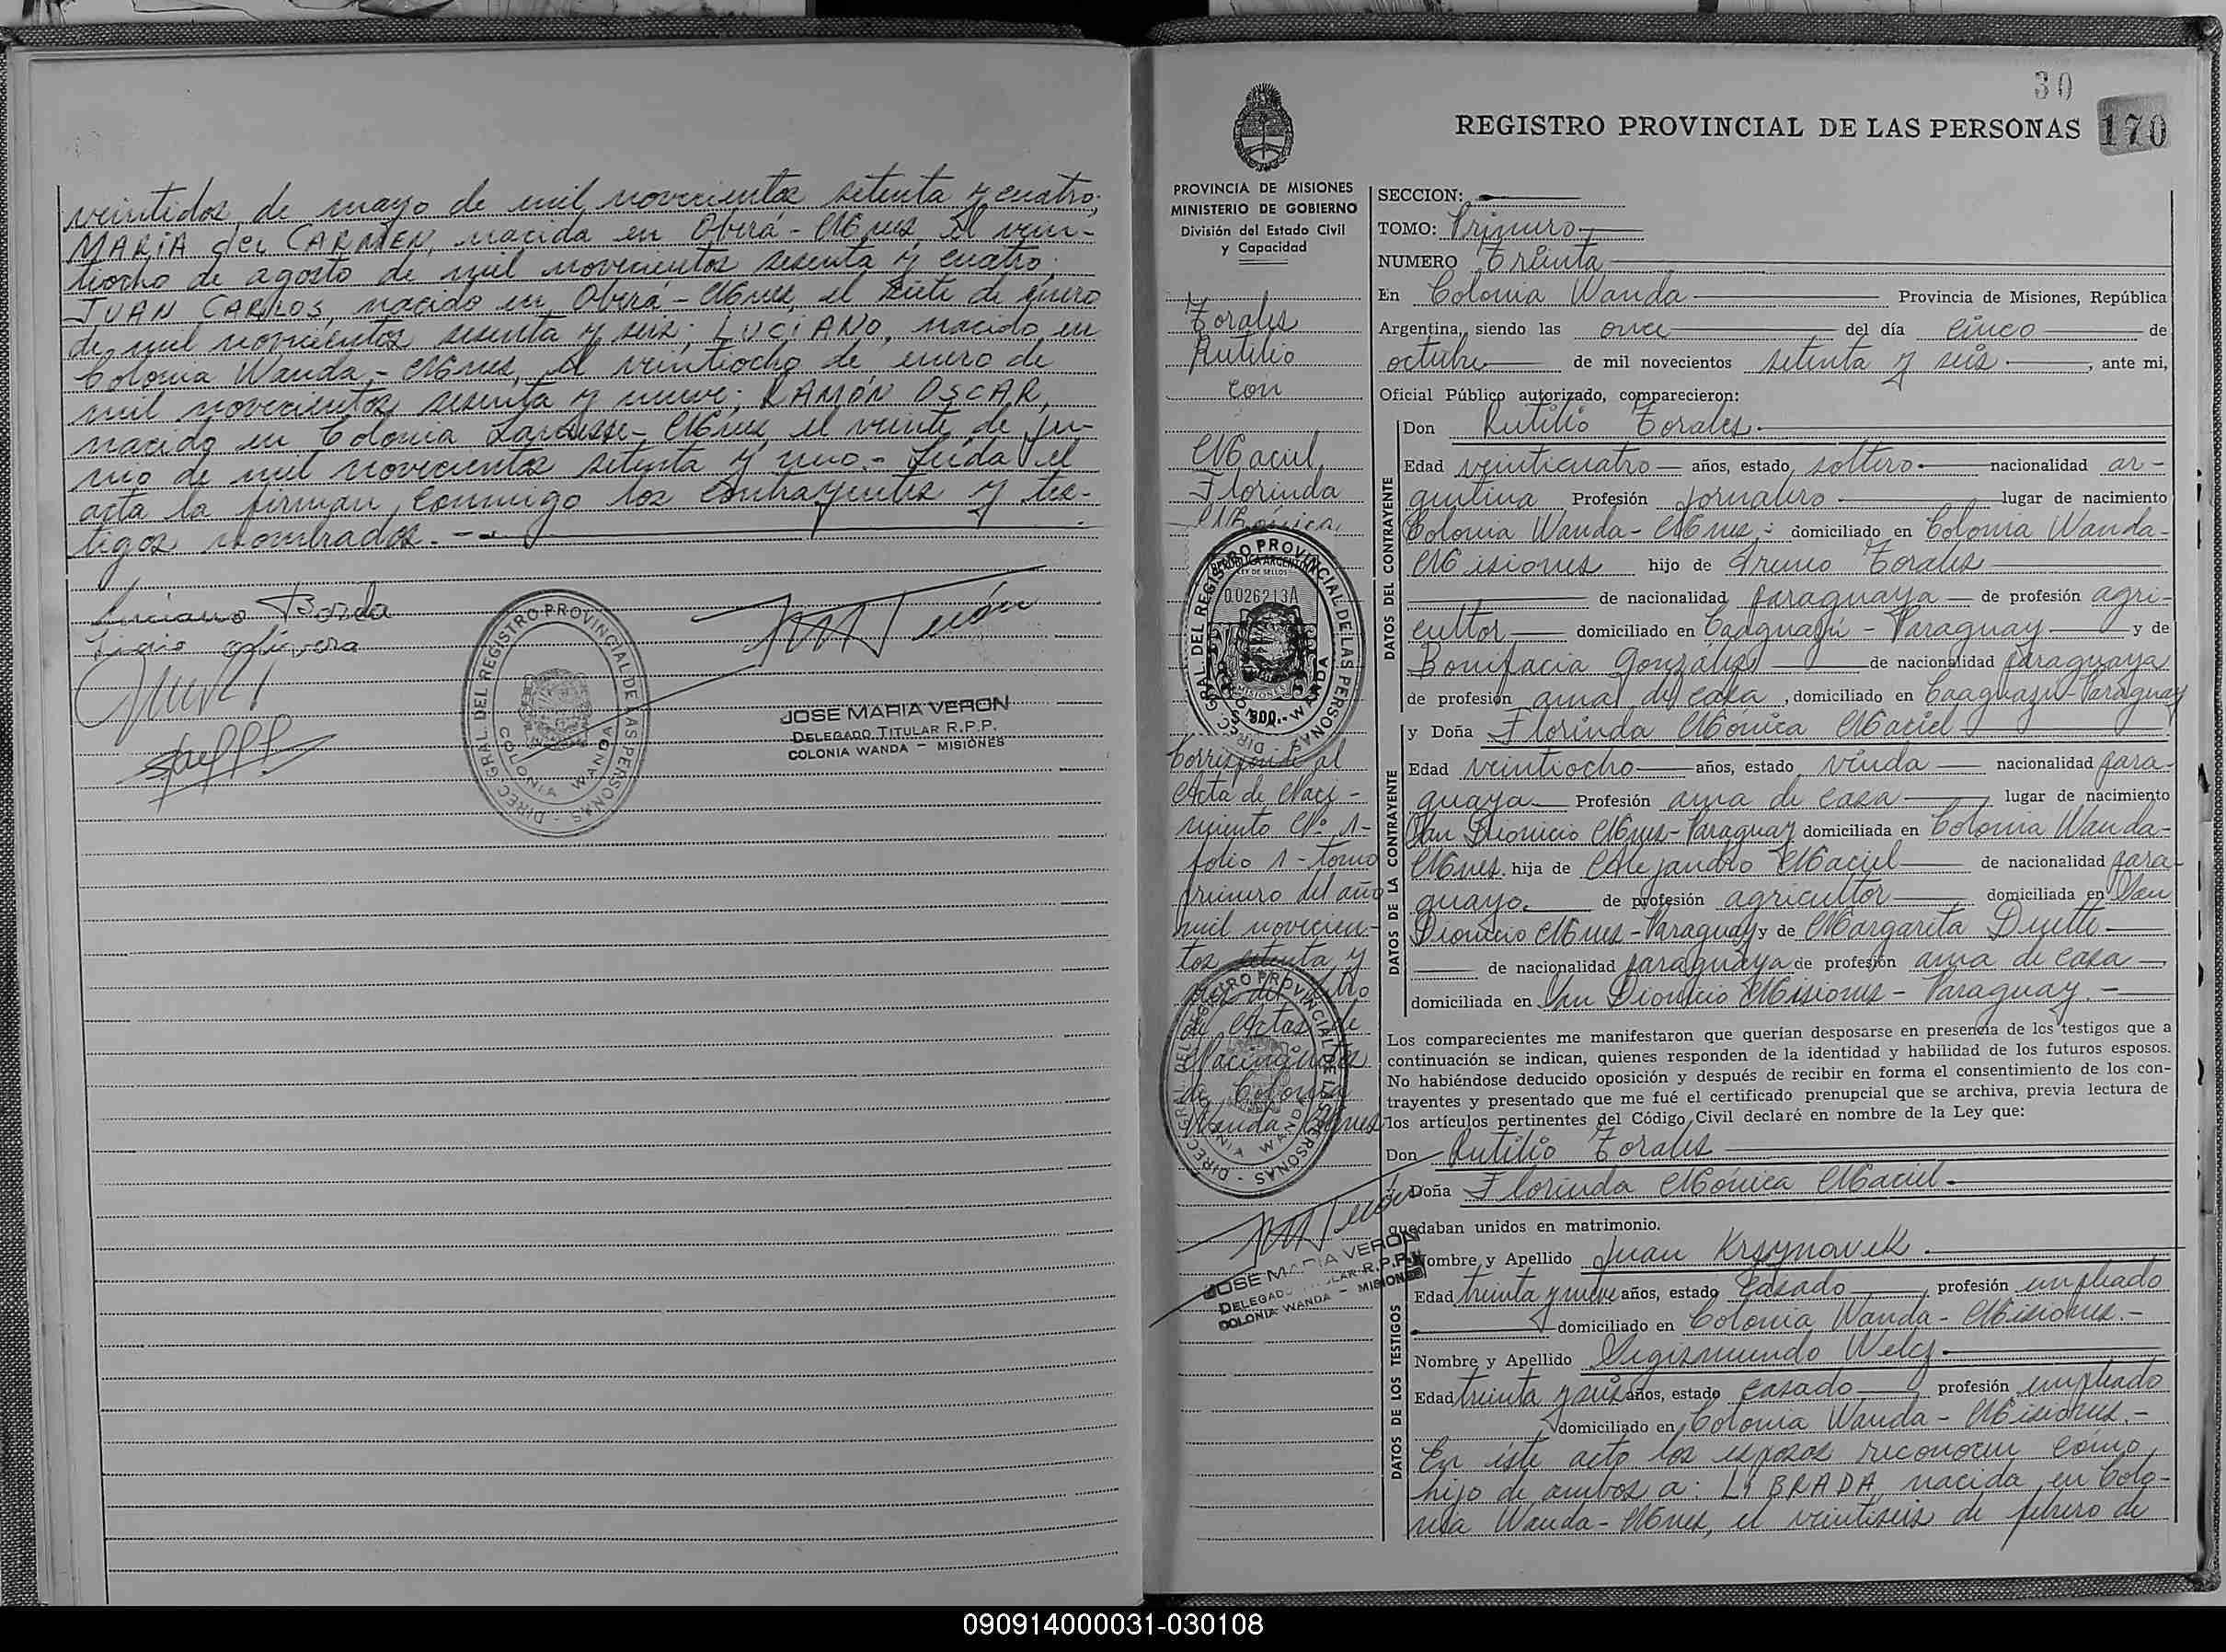 veintidos de mayo de mil novecientos setenta y cuatro;
MARIA del CARMEN, nacida en Oberá - Mnes, el vein-
tiocho de agosto de mil novecientos sesenta y cuatro;
JUAN CARLOS, nacido en Oberá - Mnes, el siete de enero
de mil novecientos sesenta y seis; LUCIANO, nacido en
Colonia Wanda - Mnes, el veintiocho de enero de
mil novecientos sesenta y nueve; RAMÓN OSCAR,
nacido en Colonia Mnes, el veinte de ju-
nio de mil novecientos setenta y uno.- Leida el
acta la firman conmigo los contrayentes y tes-
tigos nombrados.-
Luciano Borda
DIREC. GRAL. DEL REGISTRO PROVINCIAL DE LAS PERSONAS
COLONIA WANDA
JOSE MARIA VERON
DELEGADO TITULAR R.P.P.
COLONIA WANDA - MISIONES
30
170
REGISTRO PROVINCIAL DE LAS PERSONAS
PROVINCIA DE MISIONES
MINISTERIO DE GOBIERNO
División del Estado Civil
y Capacidad
Torales
Rutilio
con
Maciel,
Florinda
Mónica.
DIREC. GRAL. DEL REGISTRO PROVINCIAL DE LAS PERSONAS
REPUBLICA ARGENTINA
LEY DE SELLOS
0026213A
MISIONES
$ 500.-
Corresponde al
Acta de Naci-
miento Nº 1-
folio 1 - tomo
primero del año
mil novecien-
tos setenta y
de Actas de
Nacimientos
de Colonia
Wanda Mnes
DIREC. GRAL. DEL REGISTRO PROVINCIAL DE LAS PERSONAS
COLONIA WANDA
JOSE MARIA VERON
DELEGADO TITULAR R.P.P.
COLONIA WANDA - MISIONES
SECCION:
TOMO: Primero
NUMERO Treinta
En Colonia Wanda Provincia de Misiones, República
Argentina, siendo las once del día cinco de
octubre de mil novecientos setenta y seis, ante mi,
Oficial Público autorizado, comparecieron:
DATOS DEL CONTRAYENTE
Don Rutilio Torales
Edad veinticuatro años, estado soltero nacionalidad ar-
gentina Profesión jornalero lugar de nacimiento
Colonia Wanda - Mnes; domiciliado en Colonia Wanda-
Misiones hijo de Torales
de nacionalidad paraguaya de profesión agri-
cultor domiciliado en Caaguazú - Paraguay y de
Bonifacia González de nacionalidad paraguaya
de profesión ama de casa, domiciliado en Caaguazú-Paraguay
DATOS DE LA CONTRAYENTE
y Doña Florinda Mónica Maciel
Edad veintiocho años, estado viuda nacionalidad para-
guaya Profesión ama de casa lugar de nacimiento
San Dionicio Mnes-Paraguay domiciliada en Colonia Wanda-
Mnes. hija de Alejandro Maciel de nacionalidad para-
guaya de profesión agricultor domiciliada en San
Dionicio Mnes-Paraguay y de Margarita Duette
de nacionalidad paraguaya de profesión ama de casa
domiciliada en San Dionicio Misiones - Paraguay.-
Los comparecientes me manifestaron que querían desposarse en presencia de los testigos que a
continuación se indican, quienes responden de la identidad y habilidad de los futuros esposos.
No habiéndose deducido oposición y después de recibir en forma el consentimiento de los con-
trayentes y presentado que me fué el certificado prenupcial que se archiva, previa lectura de
los artículos pertinentes del Código Civil declaré en nombre de la Ley que:
Don Rutilio Torales
y Doña Florinda Mónica Maciel
quedaban unidos en matrimonio.
DATOS DE LOS TESTIGOS
Nombre y Apellido Juan Krsynovek
Edad treinta y nueve años, estado casado profesión empleado
domiciliado en Colonia Wanda - Misiones.-
Nombre y Apellido Segismundo Welcz
Edad treinta y seis años, estado casado profesión empleado
domiciliado en Colonia Wanda - Misiones.-
En éste acto los esposos reconocen como
hijo de ambos a: LIBRADA, nacida en Colo-
nia Wanda - Mnes, el veintiseis de febrero de
090914000031-030108